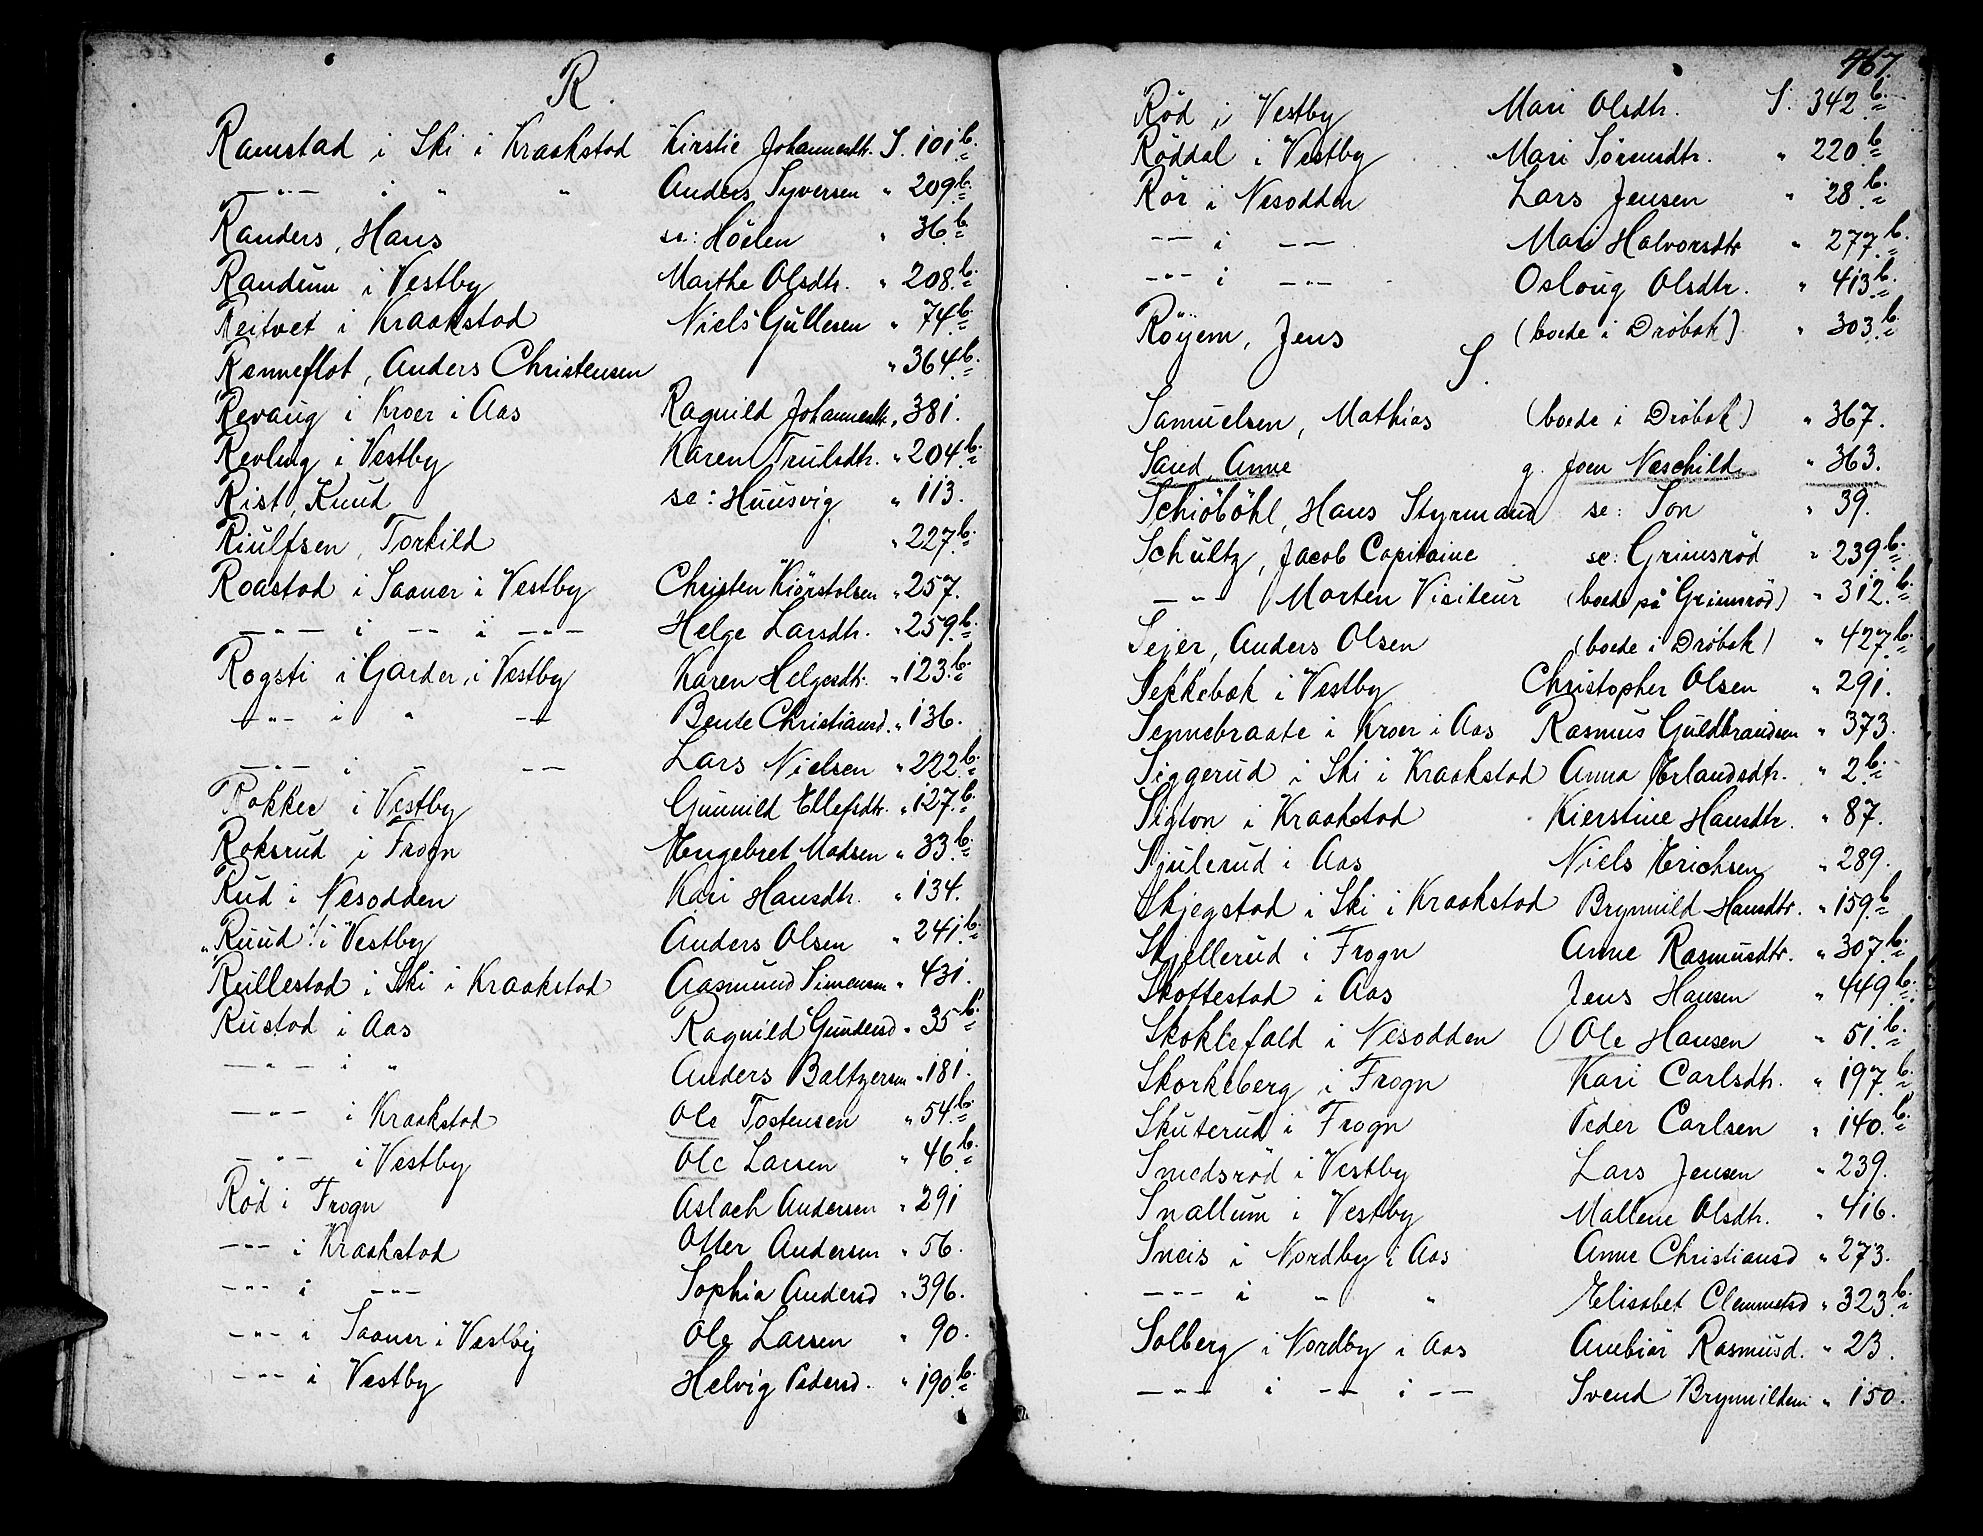 R.
Ramstad i Ski i Kraakstad Kirstie Johannesdtr. S. 101 b.
—"— i " " Anders Syversen " 209 b.
Randers, Hans se: Höelen " 36 b
Randum i Vestby Marthe Olsdtr. " 208 b.
Reitvet i Kraakstad Niels Gullesen " 74 b.
Renneflot, Anders Christensen " 364 b.
Revaug i Kroer i Aas Ragnild Johannesdtr. " 381.
Revling i Vestby Karen Trulsdtr. " 204 b.
Rist, Knud se: Huusvig " 113.
Riulfsen, Torkild " 227 b.
Roastad i Saaner i Vestby Christen Kiörstolsen " 257.
—"— i —— i —"— Helge Larsdtr. " 259 b.
Rogsti i Garder i Vestby Karen Helgesdtr. " 123 b.
—"— i " —— Bente Christiansd. " 136.
—"— i " —— Lars Nielsen " 222 b.
Rokker i Vestby Gunnild Ellefsdtr. " 127 b.
Roksrud i Frogn Engebret Madsen " 33 b.
Rud i Nesodden Kari Hansdtr. " 134.
"Ruud" i Vestby Anders Olsen " 241 b.
Rullestad i Ski i Kraakstad Aasmund Simensen " 431.
Rustad i Aas Ragnild Gundersd " 35 b.
—"— i " Anders Baltzersen " 181.
—"— i Kraakstad Ole Tostensen " 54 b.
—"— i Vestby Ole Larsen " 46 b.
Röd i Frogn Aslach Andersen " 291
—"— i Kraakstad Otter Andersen " 56.
—"— i —"— Sophia Andersd " 396.
—"— i Saaner i Vestby Ole Larsen " 90.
—"— i Vestby Helvig Pedersd. " 190 b.
467.
Röd i Vestby Mari Olsdtr. S. 342 b.
Röddal i Vestby Mari Sörensdtr. " 220 b
Rör i Nesodden Lars Jensen " 28 b.
—"— i —— Mari Halvorsdtr " 277 b.
—"— i —"— Osloug Olsdtr. " 413 b.
Röyem, Jens (boede i Dröbak) " 303 b.
S.
Samuelsen, Mathias (boede i Dröbak) " 367.
Sand, Anne g. Joen Neschild " 363.
Schiöböhl, Hans Styrmand se: Son " 39.
Schultz, Jacob Capitaine se: Grimsröd " 239 b.
—"— Morten Visiteur (boede på Grimsröd) " 312 b.
Sejer, Anders Olsen (boede i Dröbak) " 427 b.
Sekkebæk i Vestby Christopher Olsen " 291.
Sennebraate i Kroer i Aas Rasmus Guldbrandsen " 373.
Siggerud i Ski i Kraakstad Anna Erlandsdtr. " 2 b.
Sigton i Kraakstad Kierstine Hansdtr. " 87.
Sjulerud i Aas Niels Erichsen " 289.
Skjegstad i Ski i Kraakstad Brynnild Hansdtr. " 159 b
Skjellerud i Frogn Anne Rasmusdtr. " 307 b.
Skoftestad i Aas Jens Hansen " 449 b.
Skoklefald i Nesodden Ole Hansen " 51 b.
Skorkeberg i Frogn Kari Carlsdtr. " 197 b.
Skuterud i Frogn Peder Carlsen " 140 b.
Smedsröd i Vestby Lars Jensen " 239.
Snallum i Vestby Mallene Olsdtr. " 416.
Sneis i Nordby i Aas Anne Christiansd " 273.
—"— i " " Elisabet Clemmetsd " 323 b.
Solberg i Nordby i Aas Anebiör Rasmusd. " 23.
—"— i —— i —— Svend Brynnildsen " 150.